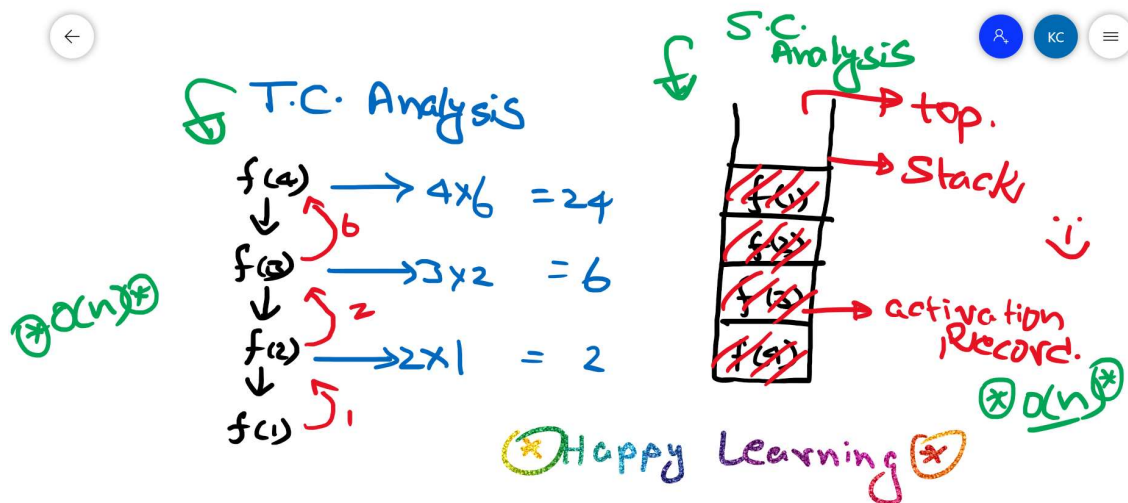 KC
T.C. Analysis
f(4) → 4x6 = 24
6
f(3) → 3x2 = 6
2
f(2) → 2x1 = 2
1
f(1)
*O(n)*
S.C.
Analysis
top.
Stack
f(1)
f(2)
f(3)
f(4)
activation
Record.
* O(n) *
* Happy Learning *